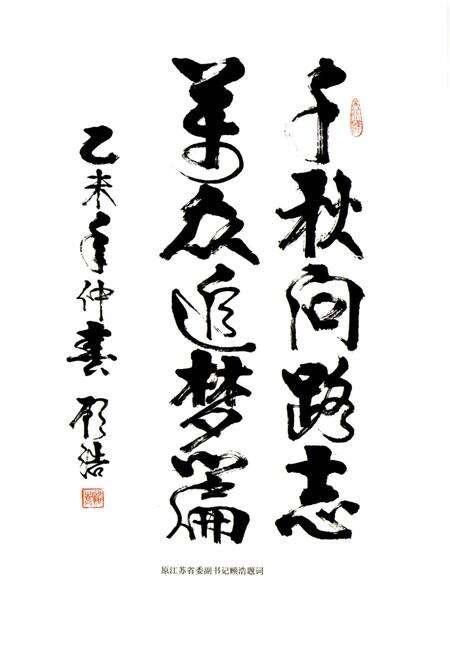 千秋问路志
万众追梦篇
乙未年仲春 顾浩
原江苏省委副书记顾浩题词